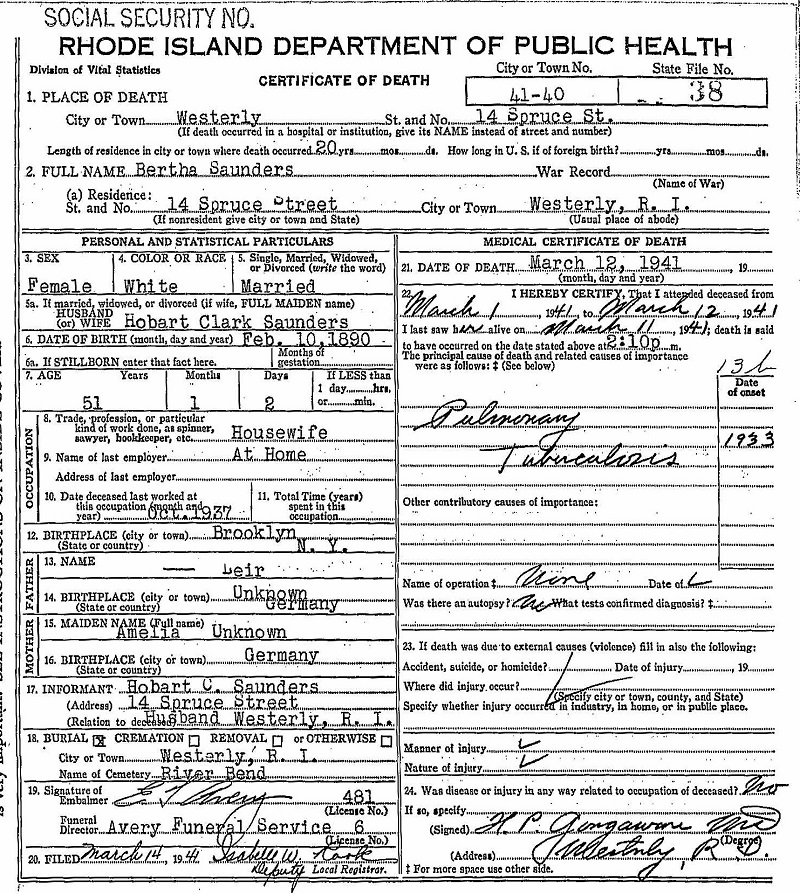 SOCIAL SECURITY NO.
RHODE ISLAND DEPARTMENT OF PUBLIC HEALTH
Division of Vital Statistics
CERTIFICATE OF DEATH
City or Town No. State File No.
41-40 38
1. PLACE OF DEATH
City or Town Westerly St. and No. 14 Spruce St.
(If death occurred in a hospital or institution, give its NAME instead of street and number)
Length of residence in city or town where death occurred 20 yrs. mos. ds. How long in U. S. if of foreign birth? yrs. mos. ds.
2. FULL NAME Bertha Saunders War Record
(Name of War)
(a) Residence:
St. and No. 14 Spruce Street City or Town Westerly, R. I.
(If nonresident give city or town and State) (Usual place of abode)
PERSONAL AND STATISTICAL PARTICULARS
3. SEX 4. COLOR OR RACE 5. Single, Married, Widowed,
or Divorced (write the word)
Female White Married
5a. If married, widowed, or divorced (if wife, FULL MAIDEN name)
HUSBAND
(or) WIFE Hobart Clark Saunders
6. DATE OF BIRTH (month, day and year) Feb. 10, 1890
6a. If STILLBORN enter that fact here. Months of
gestation
7. AGE Years Months Days If LESS than
1 day hrs.
51 1 2 or min.
OCCUPATION
8. Trade, profession, or particular
kind of work done, as spinner,
sawyer, bookkeeper, etc. Housewife
9. Name of last employer At Home
Address of last employer
10. Date deceased last worked at
this occupation (month and
year) Oct. 1937
11. Total Time (years)
spent in this
occupation
12. BIRTHPLACE (city or town) Brooklyn
(State or country) N. Y.
FATHER
13. NAME — Leir
14. BIRTHPLACE (city or town) Unknown
(State or country) Germany
MOTHER
15. MAIDEN NAME (Full name)
Amelia Unknown
16. BIRTHPLACE (city or town) Germany
(State or country)
17. INFORMANT Hobart C. Saunders
(Address) 14 Spruce Street
(Relation to deceased) Husband Westerly, R. I.
18. BURIAL ☒ CREMATION ☐ REMOVAL ☐ or OTHERWISE ☐
City or Town Westerly, R. I.
Name of Cemetery River Bend
19. Signature of
Embalmer E Avery 481
(License No.)
Funeral
Director Avery Funeral Service 6
(License No.)
20. FILED March 14, 1941 Isabelle W.
Deputy Local Registrar.
MEDICAL CERTIFICATE OF DEATH
21. DATE OF DEATH March 12, 1941, 19
(month, day and year)
22. I HEREBY CERTIFY, That I attended deceased from
March 1, 1941, to March 12, 1941
I last saw her alive on March 11, 1941; death is said
to have occurred on the date stated above at 2:10p m.
The principal cause of death and related causes of importance
were as follows: ‡ (See below)
13b
Date
of onset
Pulmonary 1933
Tuberculosis
Other contributory causes of importance:
Name of operation ‡ None Date of
Was there an autopsy? No What tests confirmed diagnosis? ‡
23. If death was due to external causes (violence) fill in also the following:
Accident, suicide, or homicide? Date of injury, 19
Where did injury occur?
(Specify city or town, county, and State)
Specify whether injury occurred in industry, in home, or in public place.
Manner of injury
Nature of injury
24. Was disease or injury in any way related to occupation of deceased? No
If so, specify
(Signed) H. P. MD
(Degree)
(Address) Westerly, R. I.
‡ For more space use other side.